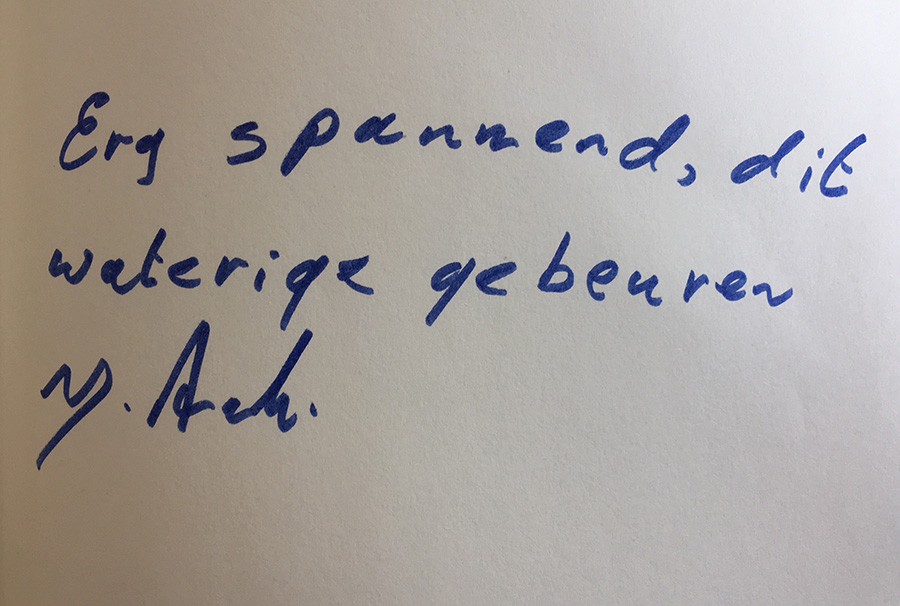 Erg spannend, dit
waterige gebeuren